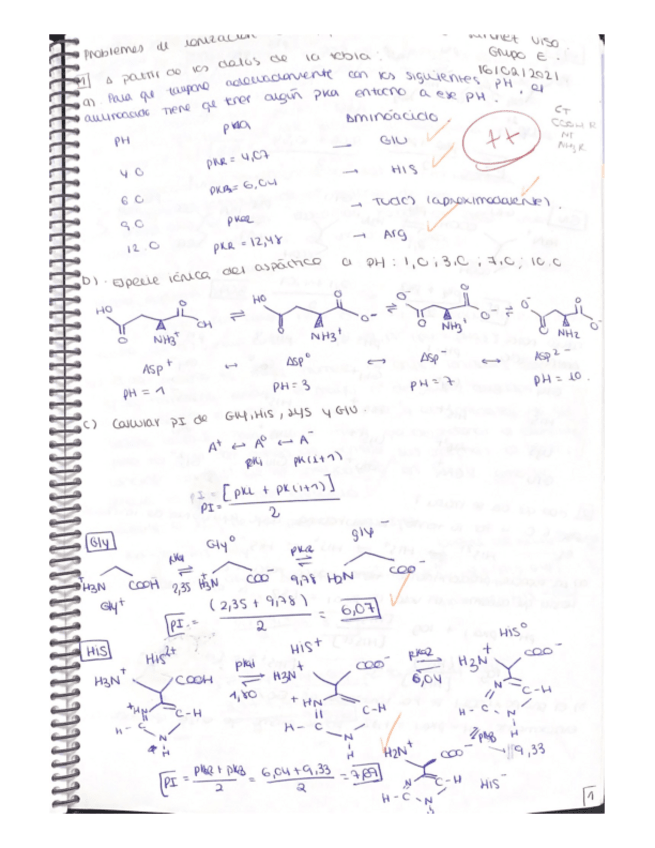 Problemas de ionización
Grupo E.
16/02/2021
1 A partir de los datos de la tabla:
a). Para que tampone adecuadamente con los siguientes pH, el
aminoácido tiene que tener algún pKa entorno a ese pH.
PH pKa Aminoácido
4,0 pKR = 4,07 → Glu
6,0 pKR = 6,04 → His
9,0 pKa2 → Todos (aproximadamente).
12,0 pKR = 12,48 → Arg
++
b). Especie iónica del aspártico a pH: 1,0; 3,0; 7,0; 10,0
HO O O OH NH3+ ⇌ HO O O O- NH3+ ⇌ O- O O O- NH3+ ⇌ O- O O O- NH2
Asp+ ↔ Asp0 ↔ Asp- ↔ Asp2-
PH = 1 PH = 3 PH = 7 PH = 10.
c) Calcular pI de Gly, His, Lys y Glu
A+ ↔ A0 ↔ A-
pKi pK(i+1)
PI = [pKi + pK(i+1)] / 2
Gly
Gly+ H3N+ COOH ⇌ pK1 2,35 Gly0 H3N+ COO- ⇌ pKa2 9,78 Gly- H2N COO-
PI = (2,35 + 9,78) / 2 = 6,07
His
His2+ H3N+ COOH +HN C-H H-C N H
pKa1 ⇌ 1,80
His+ H3N+ COO- +HN C-H H-C N H
pKa2 ⇌ 6,04
His0 H3N+ COO- N C-H H-C N H
pK3 9,33
H2N+ COO- N C-H H-C N H His-
PI = pKa2 + pK3 / 2 = 6,04 + 9,33 / 2 = 7,69
1